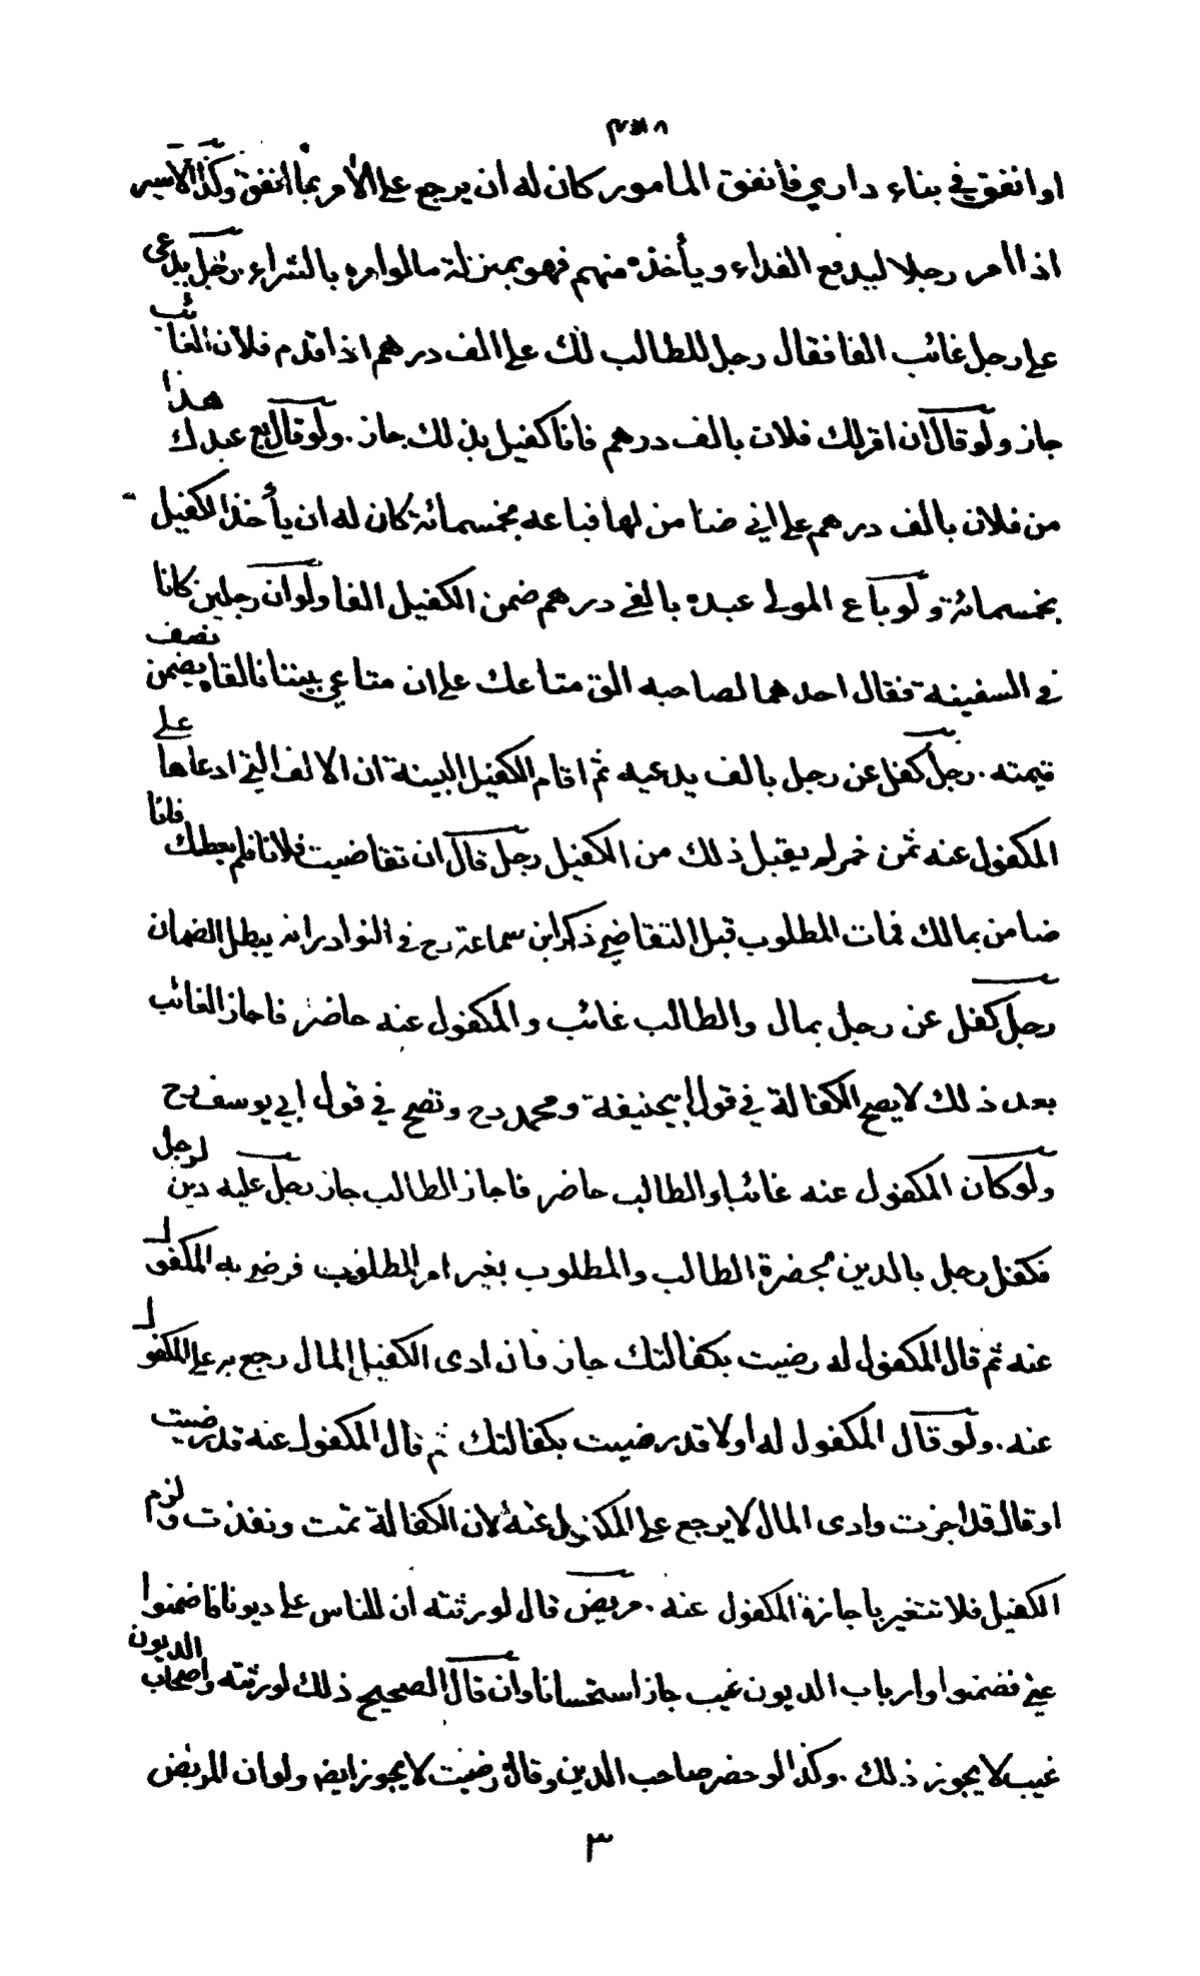 او انفق في بناء داري فانفق المامور كان له ان يرجع على الآمر بما انفق وكذا الاسير
اذا امر رجلا ليدفع الفداء ويأخذه منهم فهو بمنزلة ما لو امره بالشراء. رجل يدعى
على رجل غائب الفا فقال رجل للطالب لك على الف درهم اذا قدم فلان الغائب
جاز ولو قال ان اقر لك فلان بالف درهم فانا كفيل بذلك جاز. ولو قال بع عبدك هذا
من فلان بالف درهم على اني ضامن لها فباعه بخمسمائة كان له ان يأخذ الكفيل
بخمسمائة ولو باع المولى عبده بالفي درهم ضمن الكفيل الفا ولو ان رجلين كانا
في السفينة فقال احدهما لصاحبه الق متاعك على ان متاعي بيننا فالقاه يضمن نصف
قيمته. رجل كفل عن رجل بالف يدعيه ثم اقام الكفيل البينة ان الالف التي ادعاها على
المكفول عنه ثمن خمر لم يقبل ذلك من الكفيل رجل قال ان تقاضيت فلانا فلم يعطك فانا
ضامن بمالك فمات المطلوب قبل التقاضي ذكر ابن سماعة رح في النوادر انه يبطل الضمان
رجل كفل عن رجل بمال والطالب غائب والمكفول عنه حاضر فاجاز الغائب
بعد ذلك لا يصح الكفالة في قول ابيحنيفة ومحمد رح وتصح في قول ابي يوسف رح
ولو كان المكفول عنه غائبا والطالب حاضر فاجاز الطالب جاز رجل عليه دين لرجل
فكفل رجل بالدين بحضرة الطالب والمطلوب بغير امر المطلوب فرضي به المكفول
عنه ثم قال المكفول له رضيت بكفالتك جاز فان ادى الكفيل المال رجع به على المكفول
عنه. ولو قال المكفول له اولا قد رضيت بكفالتك ثم قال المكفول عنه قد رضيت
او قال قد اجزت وادى المال لا يرجع على المكفول عنه لان الكفالة تمت ونفذت ولزم
الكفيل فلا تتغير باجازة المكفول عنه. مريض قال لورثته ان للناس على ديونا فاضمنوا
عني فضمنوا وارباب الديون غيب جاز استحسانا وان قال الصحيح ذلك لورثته واصحاب الديون
غيب لا يجوز ذلك. وكذا لو حضر صاحب الدين وقال رضيت لا يجوز ايضا ولو ان المريض
٣